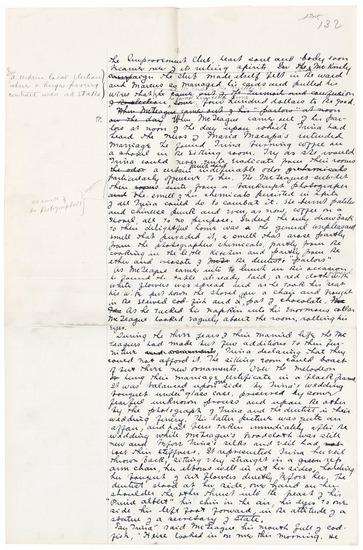 132
the Improvement Club, heart soul and body soon
became one of its ruling spirits. In the McKinley
campaign the club made itself felt in the ward
and Marcus so managed his cards and pulled his
wires that he came out of the turmoil and confusion
of election some four hundred dollars to the good.
When McTeague came out of his "parlors" at noon
on the day When McTeague came out of his par-
lors at noon of the day upon which Trina had
heard the news of Maria Macapa's intended
marriage he found Trina burning coffee on
a shovel in the sitting room. Try as she would
Trina could never quite eradicate from their rooms
a certain indefinable odor
particularly offensive to her. The McTeagues
the smell of the chemicals persisted in spite
of all Trina could do to combat it. She burnt pastiles
and Chinese punk and even, as now, coffee on a
shovel, all to no purpose. Indeed the only drawback
to their delightful home was the general unpleasant
smell that pervaded it, a smell that arose partly
from the photographer's chemicals, partly from the
cooking in the little kitchen and partly from the
ether and creosote of the dentist's "parlors"
As McTeague came in to lunch on this occasion
he found the table already laid, a red cloth with
white flowers was spread and as he took his seat
his wife put down the shovel on a chair and brought
in the stewed cod-fish and a pot of chocolate.
As he tucked his napkin into his enormous collar
McTeague looked vaguely about the room, rolling his
eyes.
During the three years of their married life the Mc-
Teagues had made but few additions to their fur-
niture Trina declaring that they
could not afford it. The sitting room could boast
of but three new ornaments. Over the melodeon
hung their marriage certificate in a black frame
It was balanced upon one side by Trina's wedding
bouquet under a glass case, preserved by some
fearful unknown process and upon the other
by the photograph of Trina and the dentist in their
wedding finery. The latter picture was quite an
affair, and had been taken immediately after the
wedding while McTeague's broadcloth was still
new and before Trina's silks and veil had
lost their stiffness. It represented Trina her veil
thrown back, sitting very straight in a green rep
arm chair, her elbows well in at her sides, holding
her bouquet of cut flowers directly before her. The
dentist stood at her side, one hand on her
shoulder the other thrust into the breast of his
"Prince Albert" his chin in the air, his eyes to one
side his left foot forward, in the attitude of a
statue of a secretary of state.
"Say Trina" said McTeague his mouth full of cod-
fish. "Heise looked in on me this morning. He